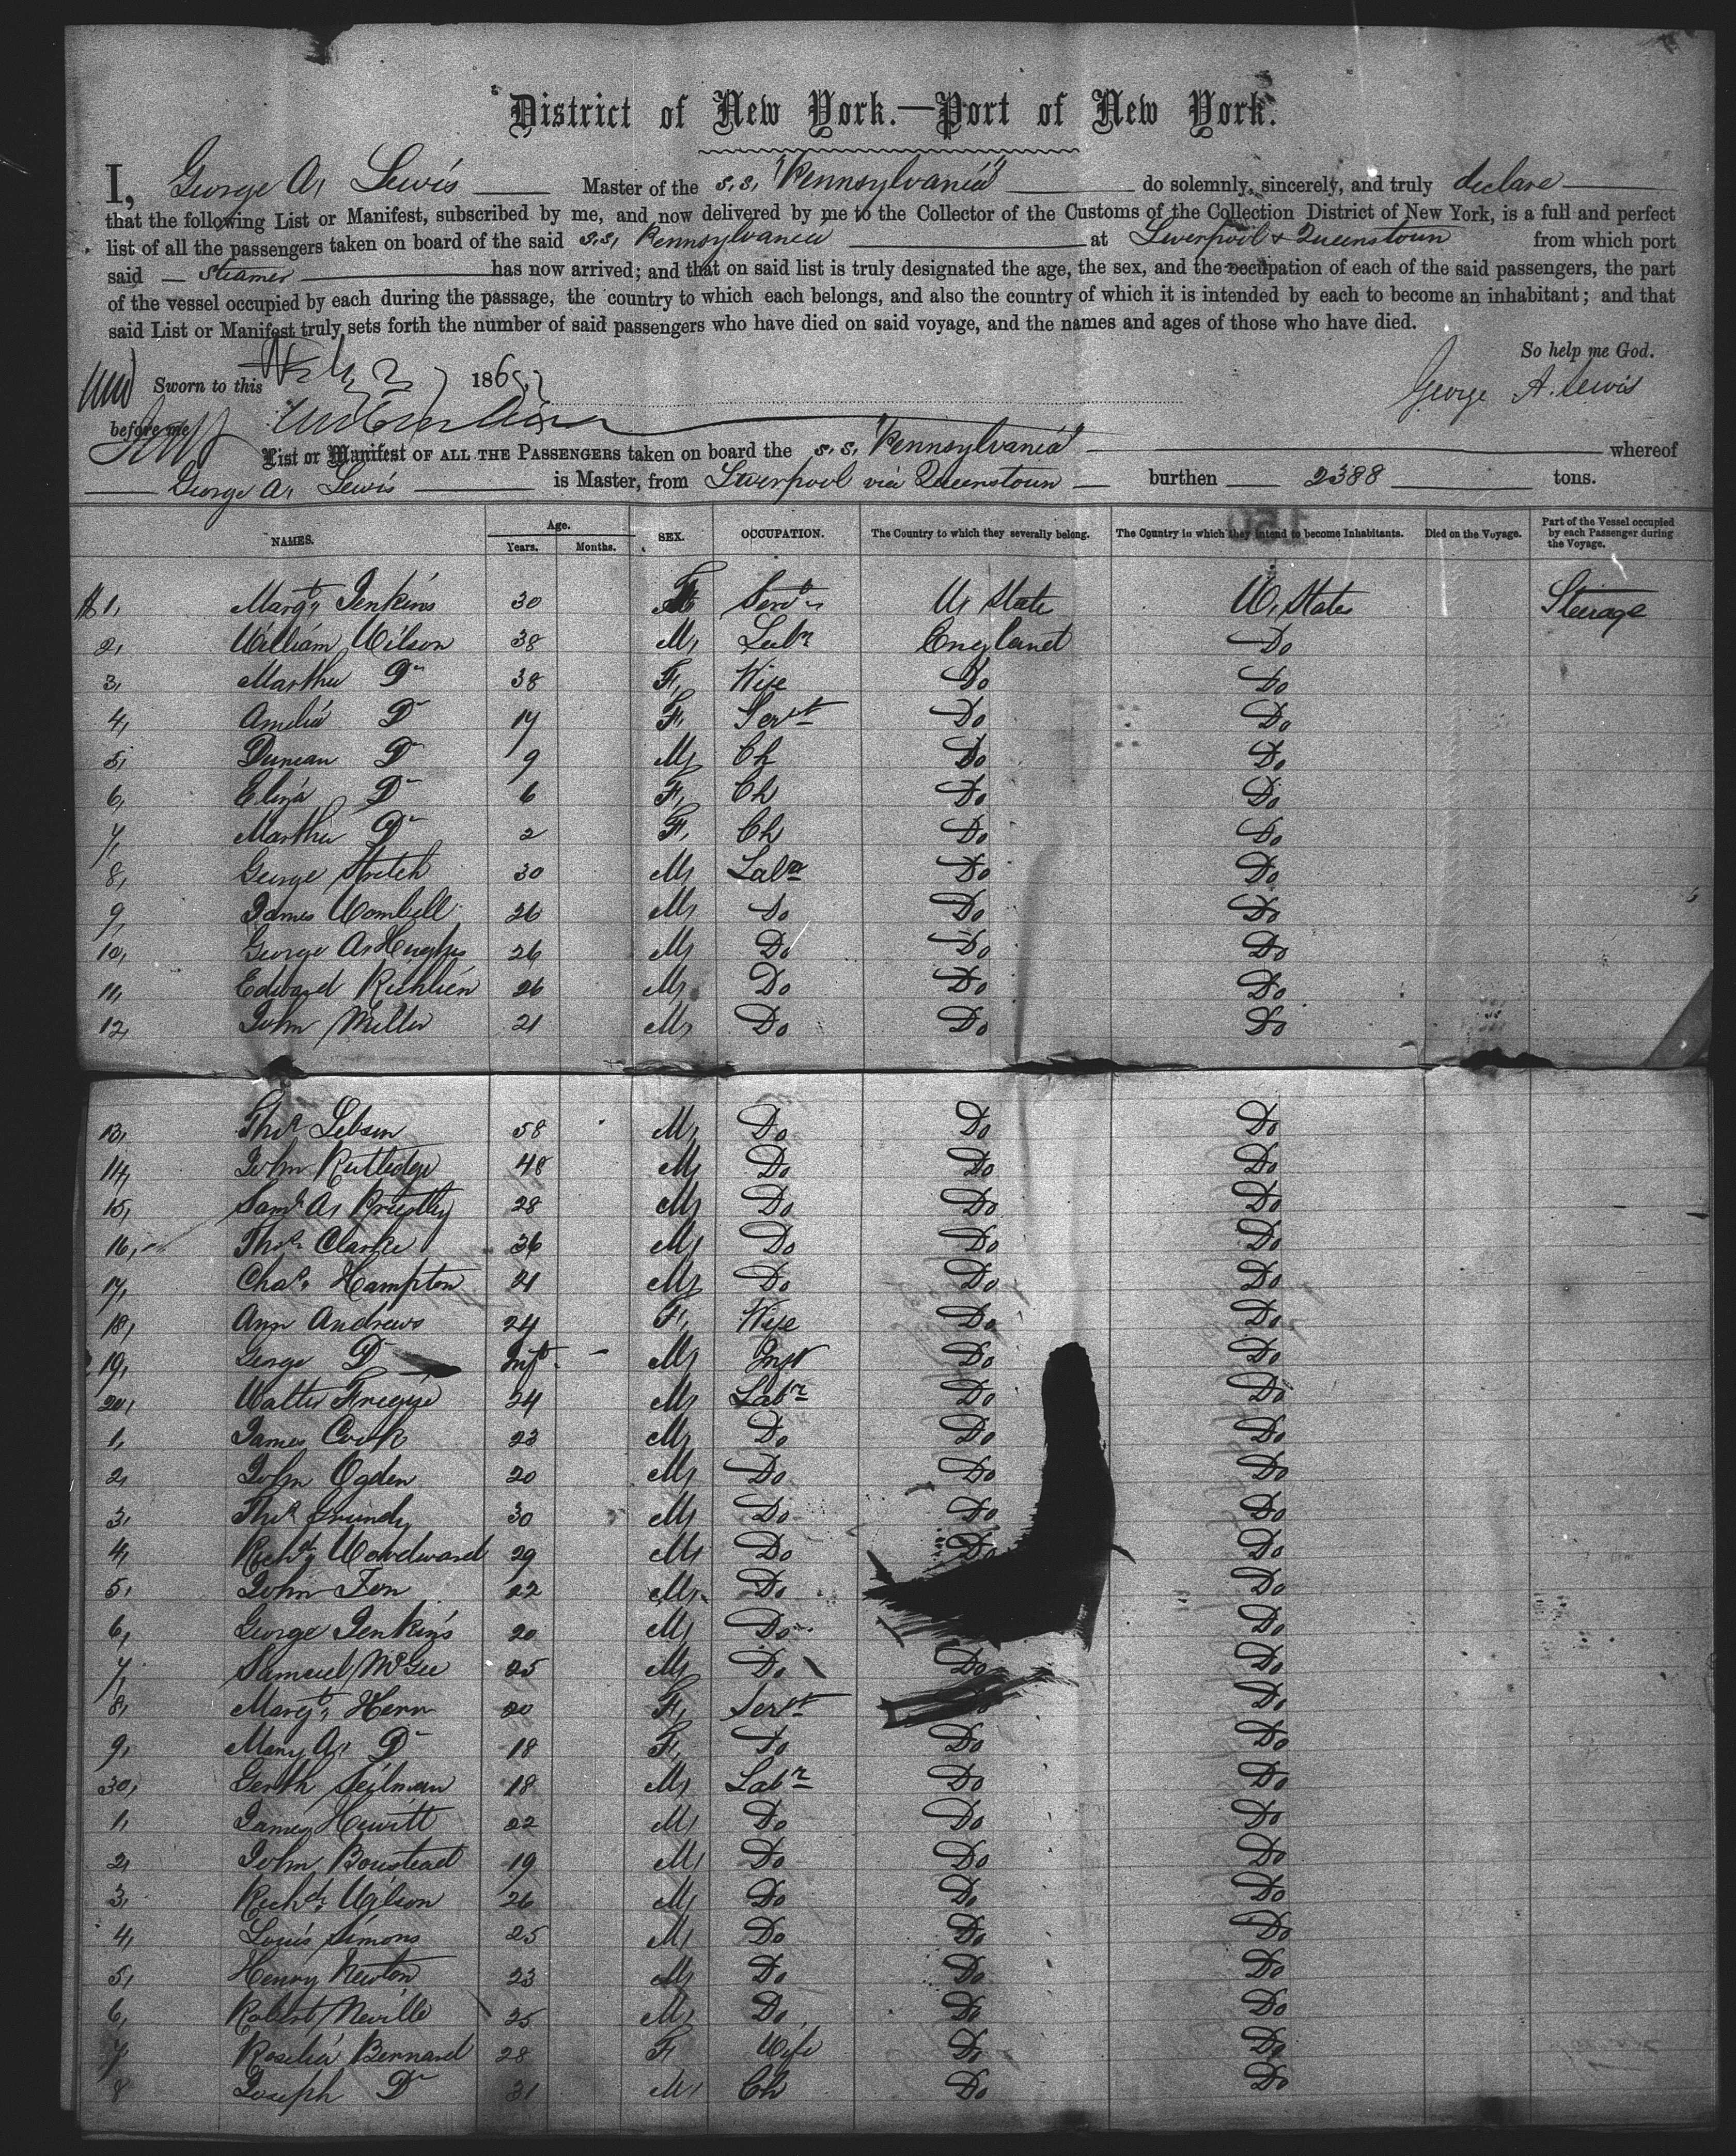 District of New York.—Port of New York.
I, George A, Lewis Master of the s.s, "Pennsylvania" do solemnly, sincerely, and truly declare
that the following List or Manifest, subscribed by me, and now delivered by me to the Collector of the Customs of the Collection District of New York, is a full and perfect
list of all the passengers taken on board of the said s.s, Pennsylvania at Liverpool & Queenstown from which port
said steamer has now arrived; and that on said list is truly designated the age, the sex, and the occupation of each of the said passengers, the part
of the vessel occupied by each during the passage, the country to which each belongs, and also the country of which it is intended by each to become an inhabitant; and that
said List or Manifest truly sets forth the number of said passengers who have died on said voyage, and the names and ages of those who have died.
So help me God.
Sworn to this 186
George A. Lewis
before me
List or Manifest OF ALL THE PASSENGERS taken on board the s.s. "Pennsylvania" whereof
George A, Lewis is Master, from Liverpool via Queenstown burthen 2388 tons.
NAMES. Age. Years. Months. SEX. OCCUPATION. The Country to which they severally belong. The Country in which they intend to become Inhabitants. Died on the Voyage. Part of the Vessel occupied by each Passenger during the Voyage.
1, Margt, Jenkins 30 F Servt U, State U, States Steerage
2, William Wilson 38 M, Labr England Do
3, Martha Do 38 F, Wife Do Do
4, Amelia Do 17 F, Servt Do Do
5, Duncan Do 9 M, Ch Do Do
6, Eliza Do 6 F, Ch Do Do
7, Martha Do 2 F, Ch Do Do
8, George Stretch 30 M, Labr Do Do
9, James Wombell 26 M, Do Do Do
10, George A, Hughes 26 M, Do Do Do
11, Edward 26 M, Do Do Do
12, John Miller 21 M, Do Do Do
13, Thos 58 M, Do Do Do
14, John Rutledge 48 M, Do Do Do
15, Saml A, Priestley 28 M, Do Do Do
16, Thos, Clarke 36 M, Do Do Do
17, Chas, Hampton 21 M, Do Do Do
18, Ann Andrews 24 F, Wife Do Do
19, George Do Inft M, Inft Do Do
20, Walter 24 M, Labr Do Do
1, James Cook 23 M, Do Do Do
2, John Ogden 20 M, Do Do Do
3, Thos Grundy 30 M, Do Do Do
4, Richd, Woodward 29 M, Do Do Do
5, John 22 M, Do Do
6, George Jenkins 20 M, Do Do
7, Samuel McGee 25 M, Do Do Do
8, Margt, Hern 20 F, Servt Do
9, Mary A, Do 18 F, Do Do Do
30, 18 M, Labr Do Do
1, James Hewitt 22 M, Do Do Do
2, John Boustead 19 M, Do Do Do
3, Richd, Wilson 26 M, Do Do Do
4, Louis Simons 25 M, Do Do Do
5, Henry Newton 23 M, Do Do Do
6, Robert Neville 25 M, Do Do Do
7 Roselia Bernard 28 F Wife Do Do
8 Joseph Do 31 M, Ch Do Do